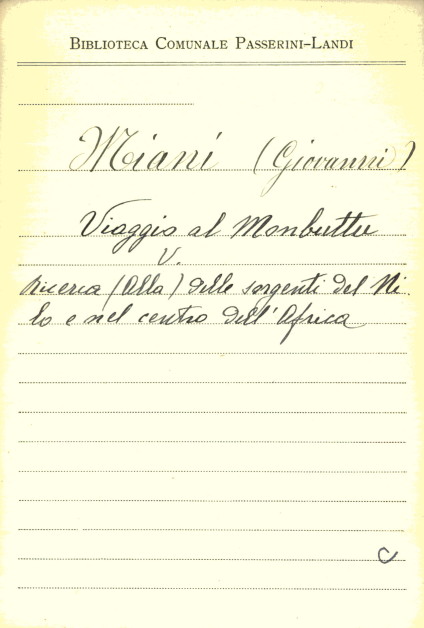 BIBLIOTECA COMUNALE PASSERINI-LANDI
Miani (Giovanni)
Viaggio al Monbuttu
V.
Ricerca (Alla) delle sorgenti del Ni-
lo e nel centro dell'Africa
C